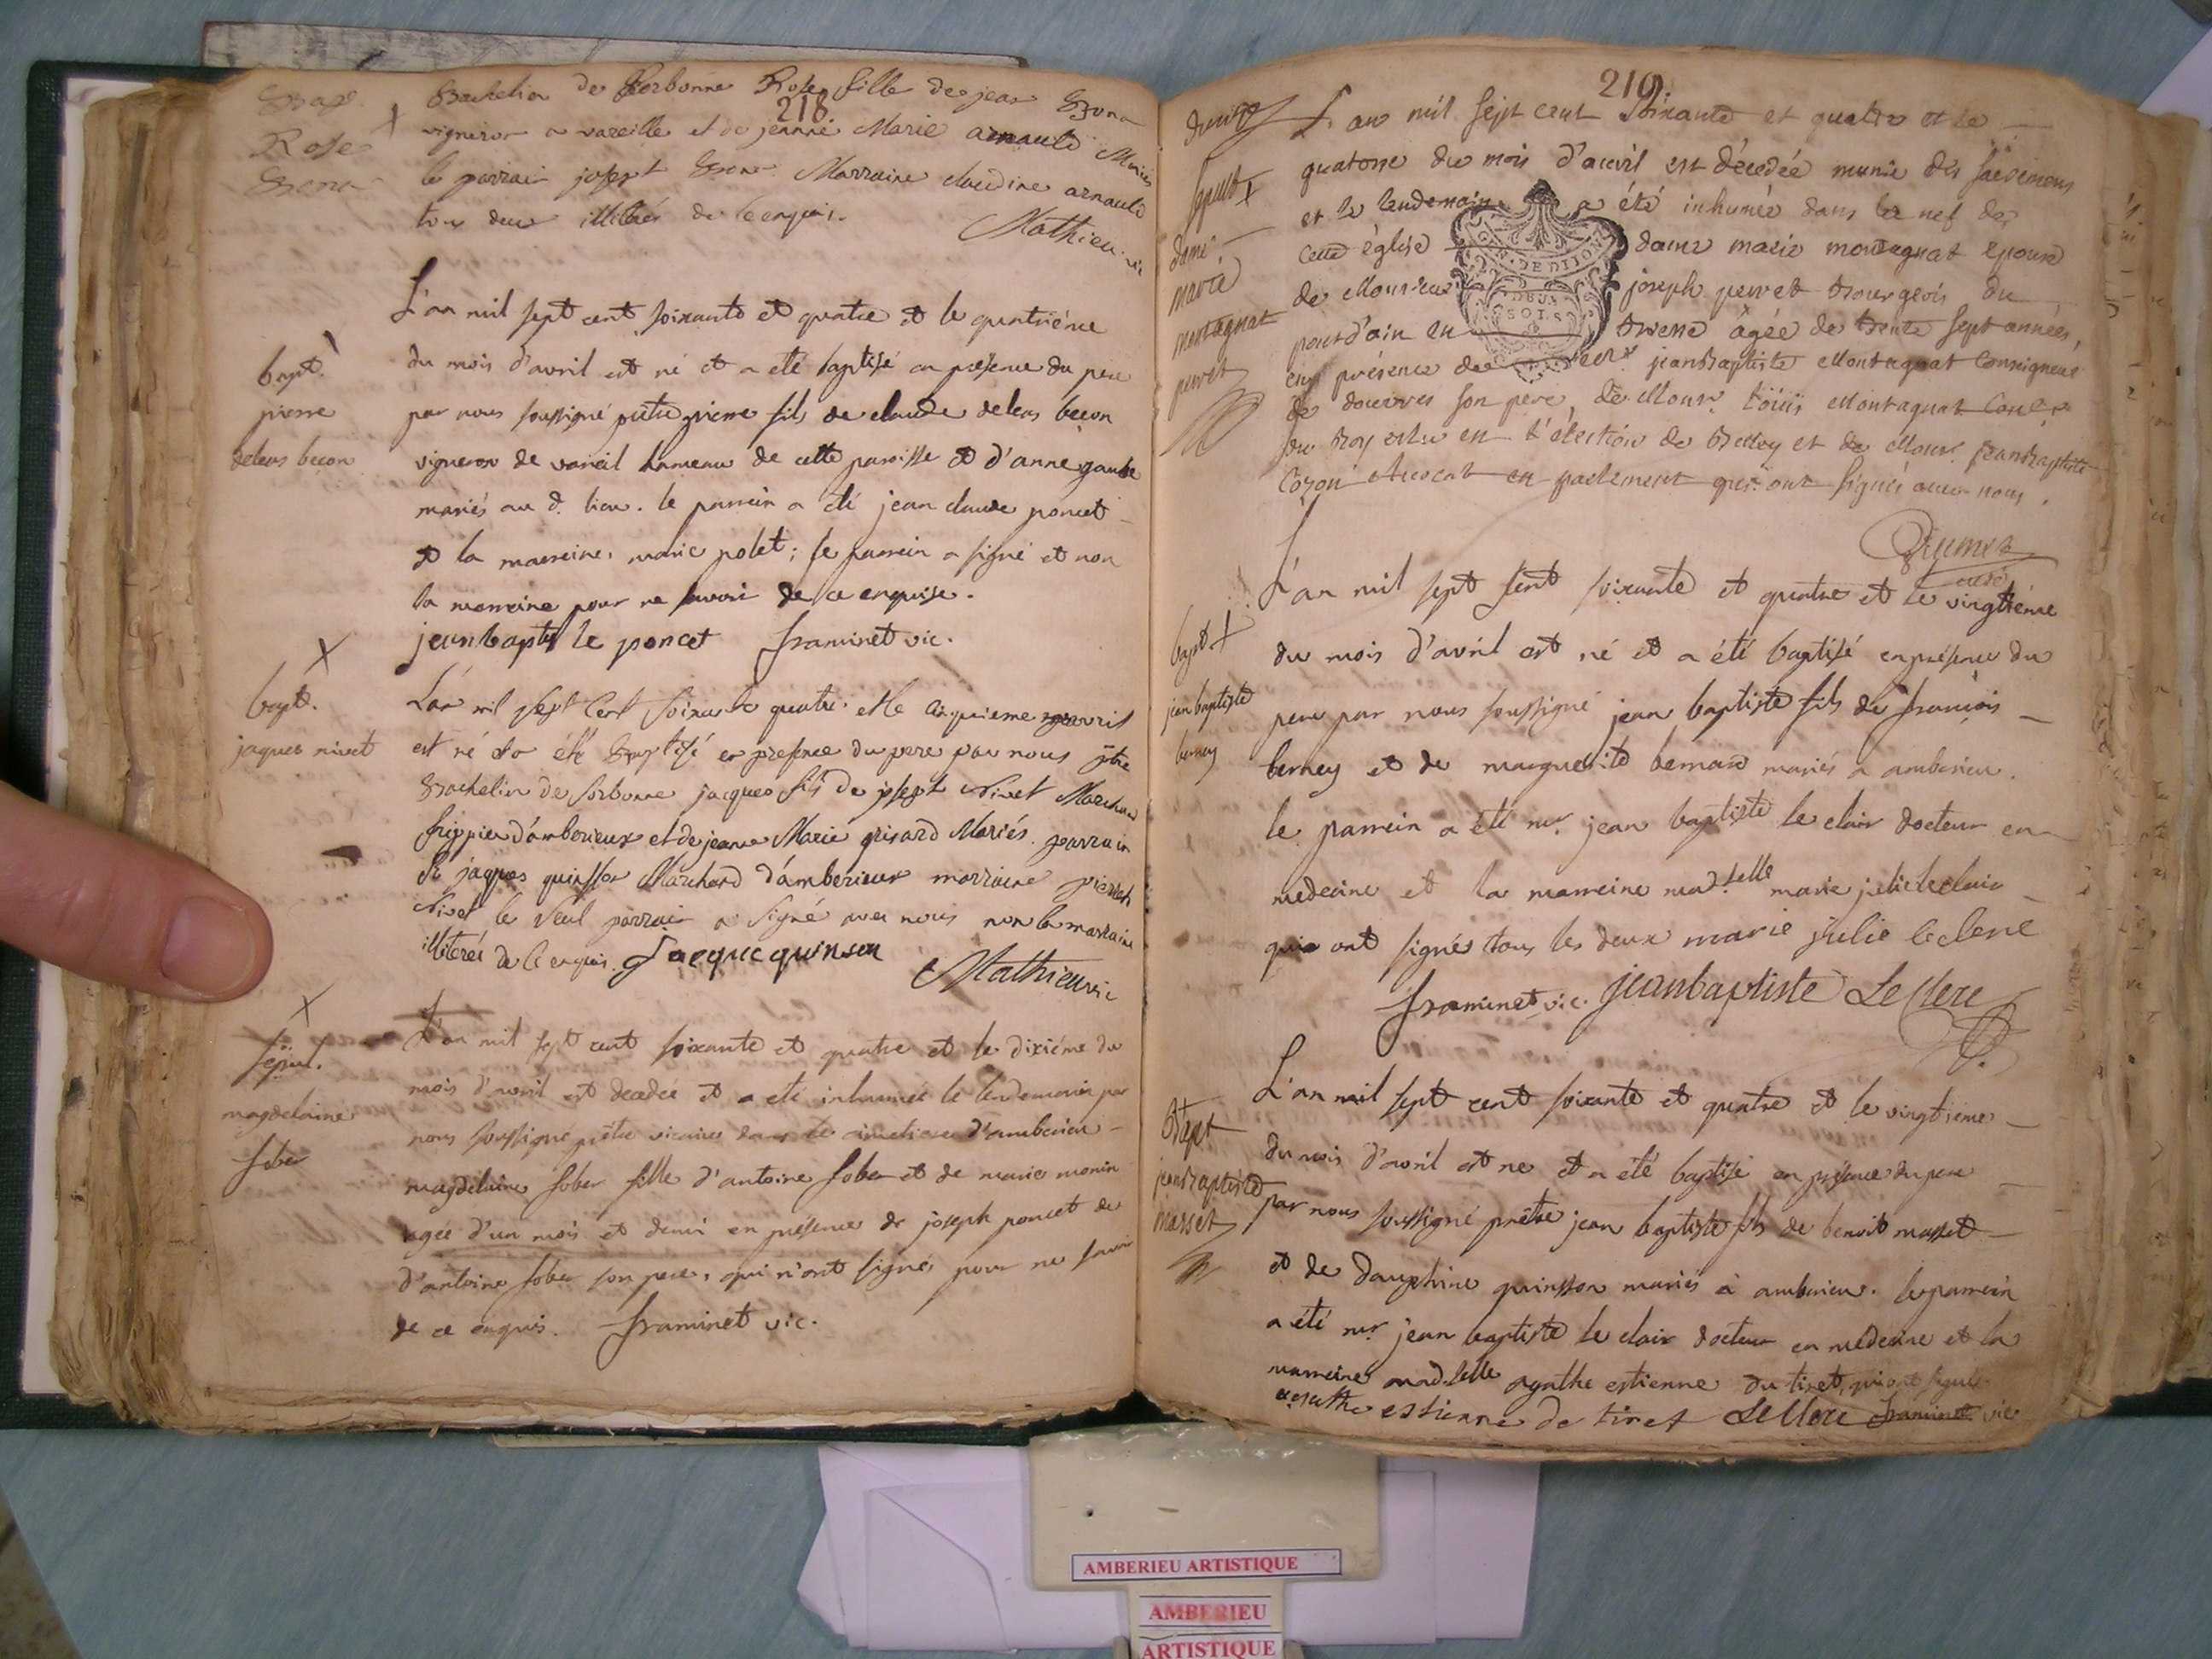 218
Bap.
Rose
Bachelier de Sorbonne Rose fille de jean
vigneron a vareille et de jeanne Marie arnaud Mariés
le parrain joseph Marraine claudine arnaud
tous deux illiterés de ce enquis.
Mathieu vic
bapt.
pierre
deleas beçon
L'an mil sept cent soixante et quatre et le quatriéme
du mois d'avril est né et a eté baptisé en presence du pere
par nous soussigné prêtre pierre fils de claude deleas beçon
vigneron de vareil hameau de cette paroisse et d'anne
mariés au d. lieu. le parrein a été jean claude poncet
et la marreine marie polet; le parrein a signé et non
la marreine pour ne savoir de ce enquise.
jeanbaptiste poncet framinet vic.
bapt.
jaques nivet
L'an mil sept cent soixante quatre et le cinquieme avril
est né et a été Baptisé en presence du pere par nous ptre
Bachelier de sorbonne jacques fils de joseph Nivet Marchand
frippier d'amberieux et de jeanne Marie grisard Mariés. parrain
Sr jaques quinsson Marchand d'amberieux marraine
Nivet le seul parrain a signé avec nous non la marraine
illiterée de ce enquis. Jacque quinson
Mathieu vic
sepul.
magdelaine
fober
L'an mil sept cent soixante et quatre et le dixiéme du
mois d'avril est decedée et a eté inhumée le lendemain par
nous soussigné prêtre vicaire dans le cimetiere d'amberieu
magdelaine fober fille d'antoine fober et de marie monin
agée d'un mois et demi en présence de joseph poncet de
d'antoine fober son pere, qui n'ont signés pour ne savoir
de ce enquis. framinet vic.
219.
sepult
dame
marie
montagnat
perret
L'an mil sept cent soixante et quatre et le
quatorse du mois d'avril est décedée munie des sacremens
et le lendemain a été inhumée dans la nef de
cette église dame marie montagnat epouse
de Monsieur joseph perret Bourgeois du
pont d'ain en Bresse âgée de trente sept années,
en présence de jean Baptiste Montagnat Conseigneur
de douvres son pere, de Monsr. Loüis Montagnat Coner
du Roy eslu en l'élection de Belley et de Monsr. jean Baptiste
Cozon Avocat en parlement qui ont signés avec nous.
curé
bapt
jean baptiste
berney
L'an mil sept cent soixante et quatre et le vingtiéme
du mois d'avril est né et a été baptisé en présence du
pere par nous soussigné jean baptiste fils de françois
berney et de marguerite bernard mariés a amberieu.
le parrein a été mr. jean baptiste le clair docteur en
medecine et la marreine madselle marie julie leclair
qui ont signés tous les deux marie julie leclerc
framinet vic. jeanbaptiste Leclerc
Bapt
jean Baptiste
masset
L'an mil sept cent soixante et quatre et le vingtieme
du mois d'avril est né et a été baptisé en présence du pere
par nous soussigné prêtre jean baptiste fils de benoit masset
et de dauphine quinsson mariés à amberieu. le parrein
a été mr. jean baptiste le clair docteur en médecine et la
marreine madselle agathe estienne du tiret, qui ont signés
agathe estienne de tiret Leclerc framinet vic
AMBERIEU ARTISTIQUE
AMBERIEU
ARTISTIQUE